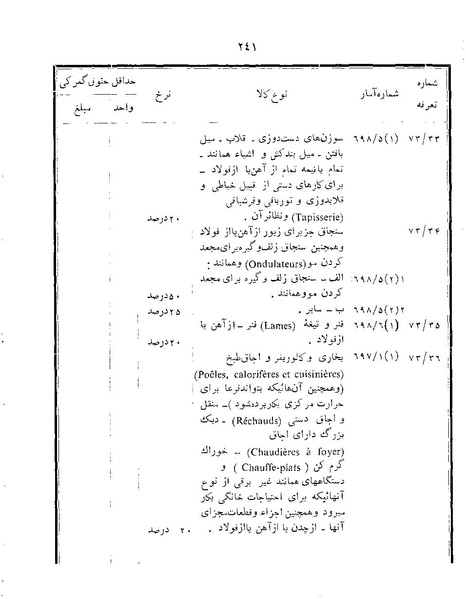 ۲٤۱
شماره تعرفه شماره آمار نوع کالا نرخ حداقل حقوق گمرکی
واحد مبلغ
۷۳/۳۳ ۶۹۸/۵(۱) سوزن‌های دست‌دوزی ـ قلاب ـ میل
بافتن ـ میل بندکش و اشیاء همانند ـ
تمام یا نیمه تمام از آهن یا از فولاد ـ
برای کارهای دستی از قبیل خیاطی و
قلابدوزی و توربافی و فرشبافی
(Tapisserie) و نظائر آن . ۲۰ درصد
۷۳/۳۴ سنجاق جز برای زیور از آهن یا از فولاد
و همچنین سنجاق زلف و گیره برای مجعد
کردن مو (Ondulateurs) و همانند :
۶۹۸/۵(۲)۱ الف ـ سنجاق زلف و گیره برای مجعد
کردن مو و همانند . ۵۰ درصد
۶۹۸/۵(۲)۲ ب ـ سایر . ۲۵ درصد
۷۳/۳۵ ۶۹۸/۶(۱) فنر و تیغهٔ (Lames) فنر ـ از آهن یا
از فولاد . ۲۰ درصد
۷۳/۳۶ ۶۹۷/۱(۱) بخاری و کالوریفر و اجاق طبخ
(Poêles, calorifères et cuisinières)
(و همچنین آن‌هائیکه بتواند فرعا برای
حرارت مرکزی بکار برده شود ) ـ منقل
و اجاق دستی (Réchauds) ـ دیک
بزرگ دارای اجاق
(Chaudières à foyer) ـ خوراك
گرم کن ( Chauffe-plats ) و
دستگاههای همانند غیر برقی از نوع
آنهائیکه برای احتیاجات خانگی بکار
میرود و همچنین اجزاء و قطعات مجزای
آنها ـ از چدن یا از آهن یا از فولاد . ۲۰ درصد